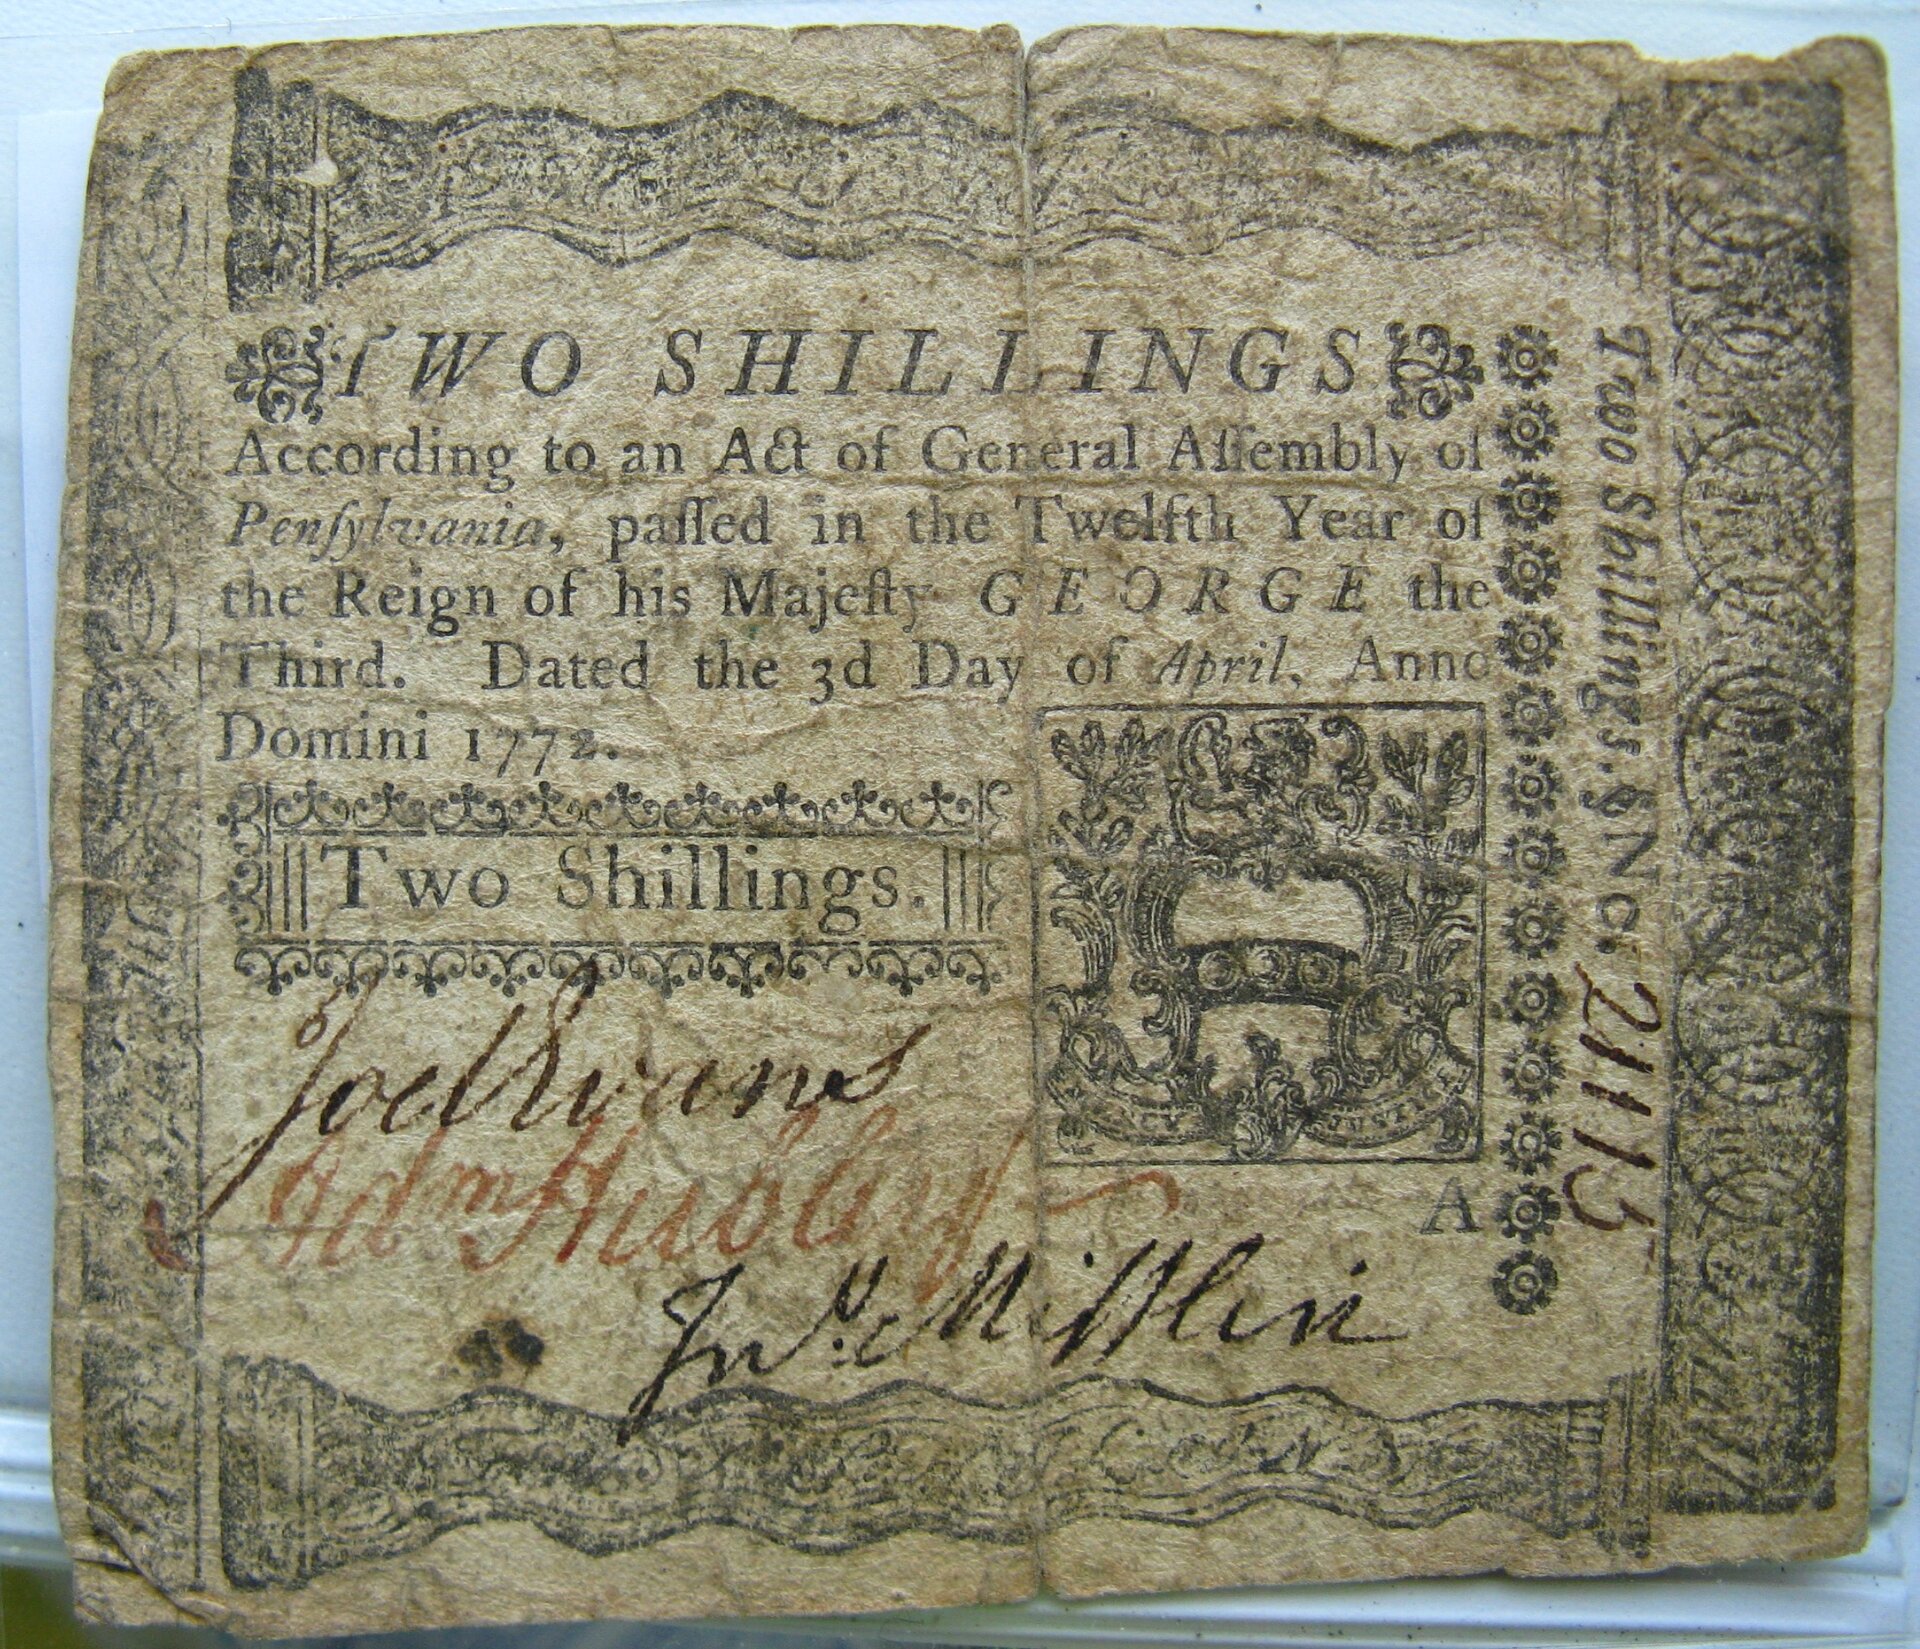 TWO SHILLINGS
According to an Act of General Aſſembly of
Penſylvania, paſſed in the Twelfth Year of
the Reign of his Majeſty GEORGE the
Third. Dated the 3d Day of April, Anno
Domini 1772.
Two Shillings.
Joel Evans
Adm Hubley
Jno. Mifflin
A
Two Shillings. § No. 21115